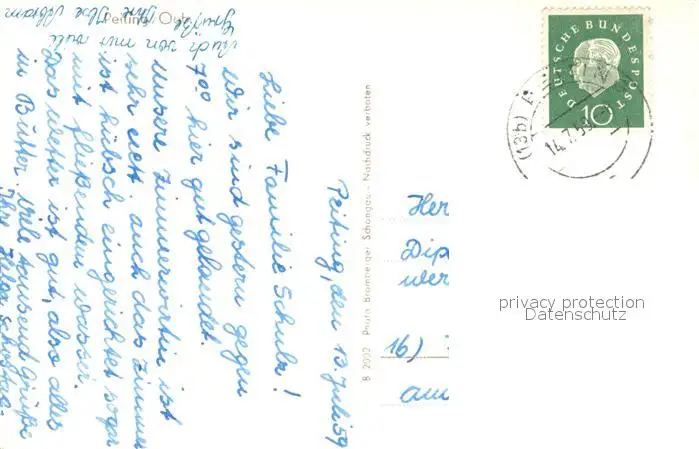 Peiting, den 13. Juli 59
Liebe Familie Schulz!
Wir sind gestern gegen
7⁰⁰ hier gut gelandet.
Unsere Zimmerwirtin ist
sehr nett, auch das Zimmer
ist hübsch eingerichtet sogar
mit fließendem Wasser.
Das Wetter ist gut, also alles
in Butter. Viele tausend Grüße
Ihre Helga
Auch von mir viele
Grüße
Ihre
Peiting/Obb.
B 2002 Photo Bromberger Schongau - Nachdruck verboten
DEUTSCHE BUNDESPOST
10
(13b)
14.7.59
Her
Dip
wer
16)
am
privacy protection
Datenschutz